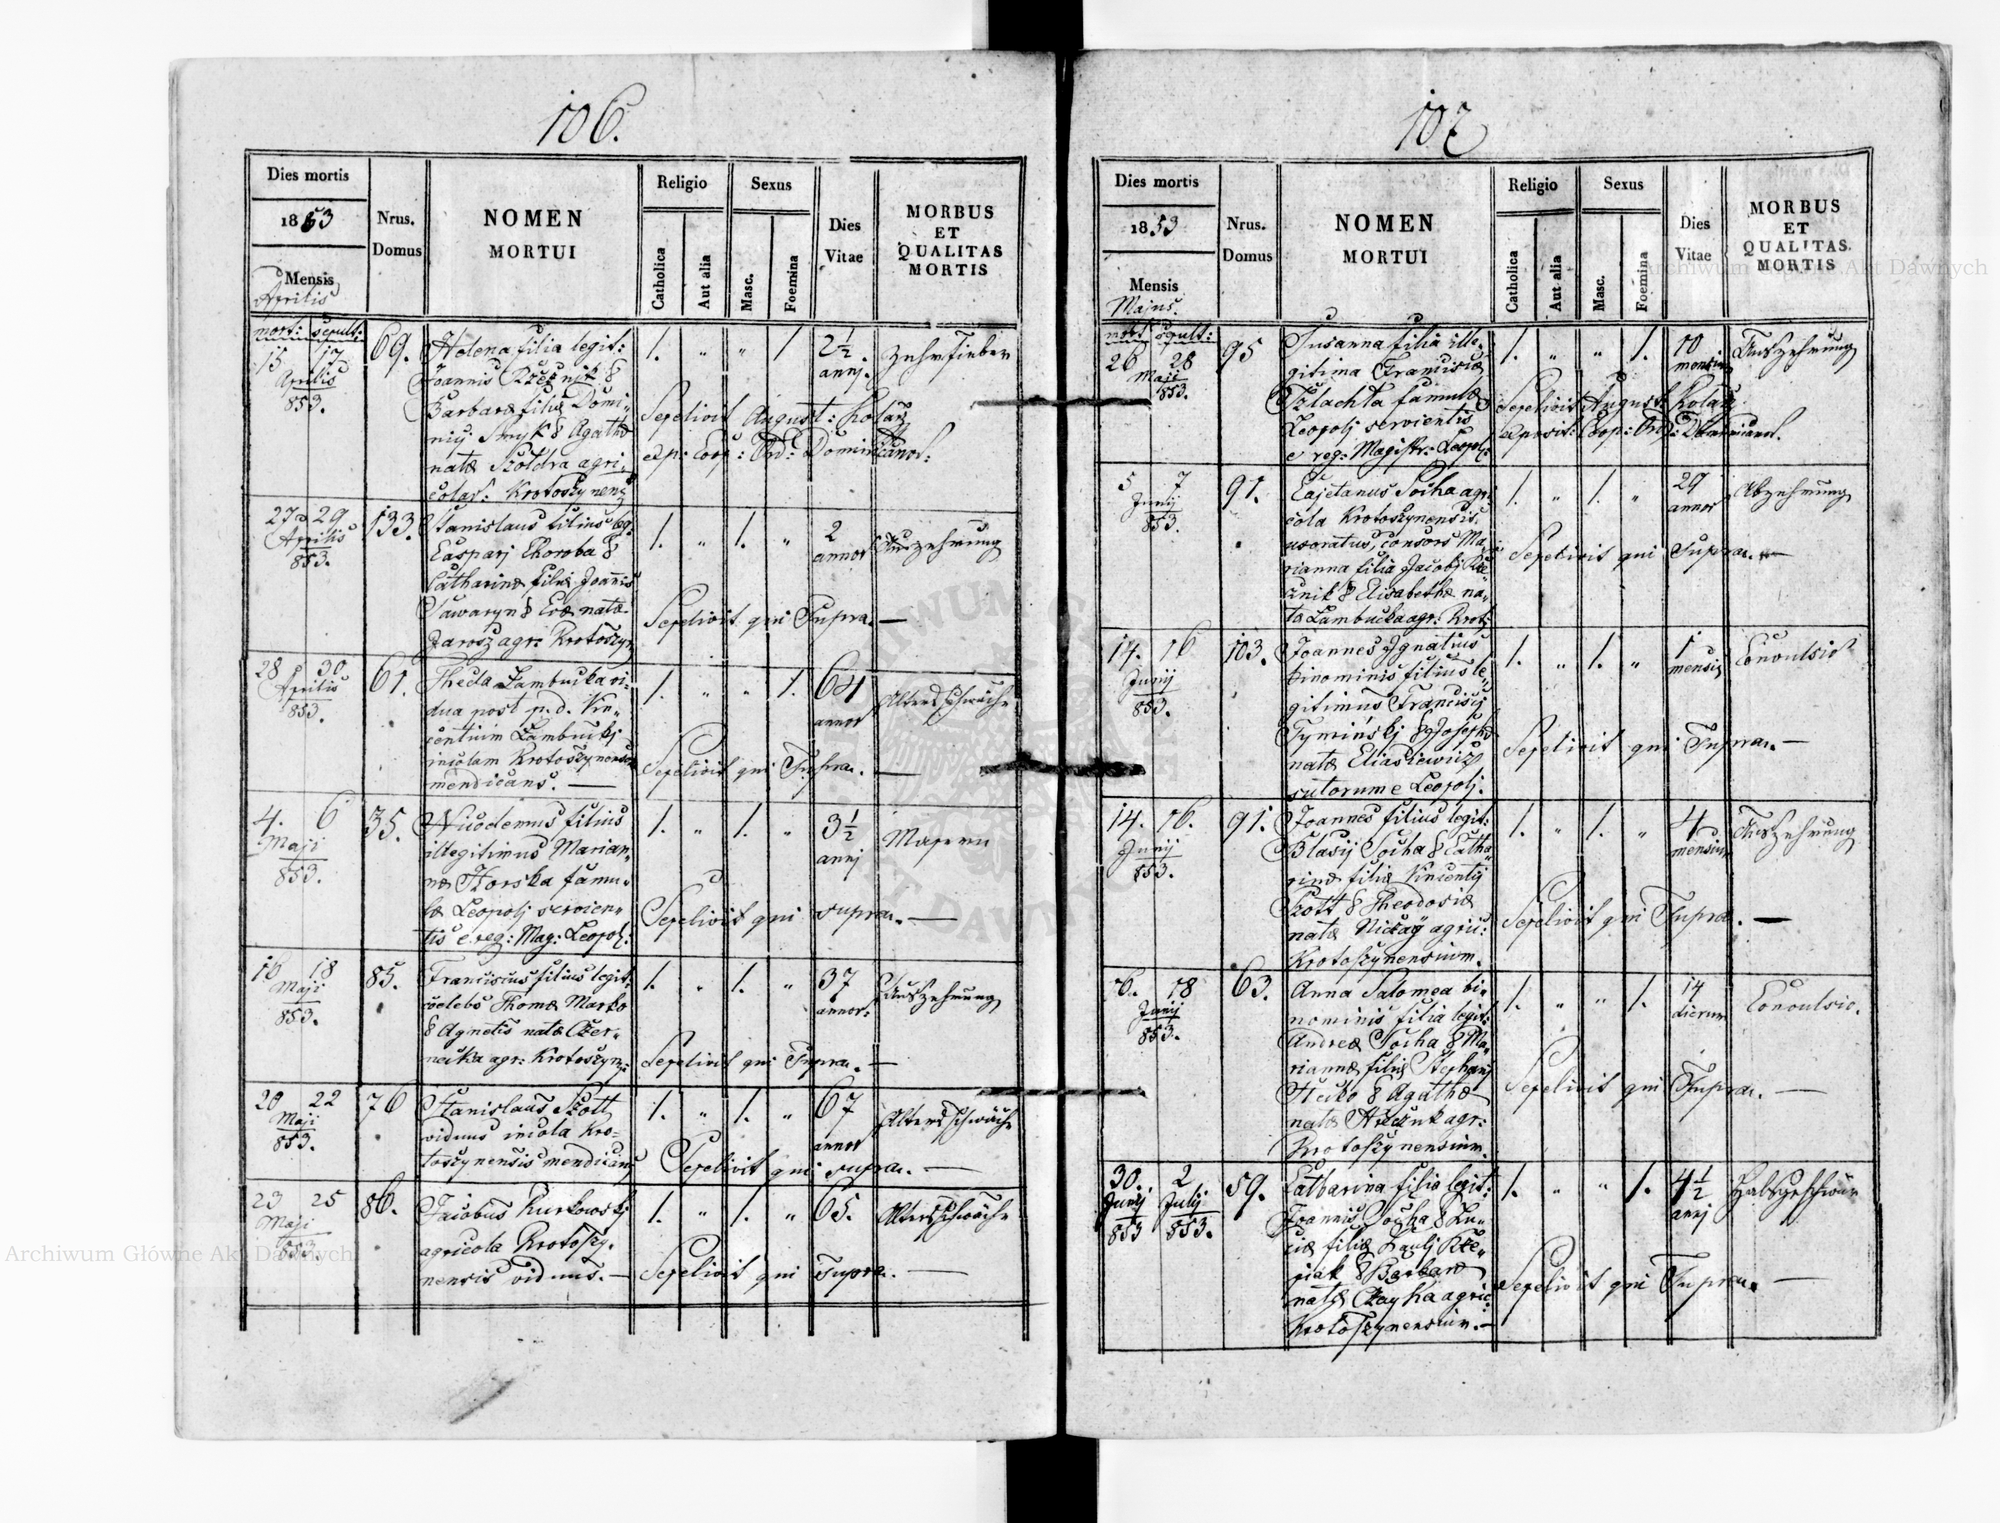 106.
Dies mortis
1853
Mensis
Aprilis
Nrus.
Domus
NOMEN
MORTUI
Religio
Catholica
Aut alia
Sexus
Masc.
Foemina
Dies
Vitae
MORBUS
ET
QUALITAS
MORTIS
mort: sepult:
15 17
Aprilis
853.
69.
Helena filia legit:
Joannis Rzeźnik &
Barbara filia Domi-
nij Smyk & Agatha
nata Szoldra agri-
colar: Krotoszynens
1. " " 1
2½
annj.
Zehrfieber
Sepelivit August: Kolarz
exp: Coop: Ord: Dominicanor:
27 29
Aprilis
853.
133.
Stanislaus filius leg.
Casparj Choroba &
Catharina filia Joannis
Sawaryn & Eva nata
Jarosz agr: Krotoszyn
1. " 1. "
2
annor
Auszehrung
Sepelivit qui Supra. —
28 30
Aprilis
853.
61.
Thecla Lambucka vi-
dua post p. d. Vin-
centium Lambuckj
incolam Krotoszynensem
mendicans. —
1. " " 1.
64
annor
Altersschwäche
Sepelivit qui Supra. —
4. 6
Maji
853.
35.
Nicodemus filius
illegitimus Marian-
na Horska famu-
la Leopolj servien-
tis e reg: Mag: Leopol:
1. " 1. "
3½
annj
Masern
Sepelivit qui supra. —
16 18
Maji
853.
85.
Franciscus filius legit:
coelebs Thoma Marko
& Agnetis nata Czer-
necka agr: Krotoszyn:
1. " 1. "
37
annor:
Auszehrung
Sepelivit qui Supra. —
20 22
Maji
853.
76
Stanislaus Szott
viduus incola Kro-
toszynensis mendicans
1. " 1. "
67
annor
Altersschwäche
Sepelivit qui supra. —
23 25
Maji
853.
86.
Jacobus Kurkowskj
agricola Krotoszy-
nensis viduus. —
1. " 1. "
65.
Altersschwäche
Sepelivit qui Supra. —
107
Dies mortis
1853
Mensis
Majus.
Nrus.
Domus
NOMEN
MORTUI
Religio
Catholica
Aut alia
Sexus
Masc.
Foemina
Dies
Vitae
MORBUS
ET
QUALITAS
MORTIS
mort: sepult:
26 28
Maji
853.
95
Susanna filia ille-
gitima Francisca
Szlachta famula
Leopolj servientis
e reg: Magistr: Leopol:
1. " " 1.
10
mensium
Auszehrung
Sepelivit August Kolarz
exposit: Coop: Ord: Dominicanor.
5 7
Junij
853.
91.
Cajetanus Socha agri-
cola Krotoszynensis
uxoratus, consors Ma-
rianna filia Jacobj Rze-
źnik & Elisabetha na-
ta Lambucka agr: Krot:
1. " 1. "
29
annor
Abzehrung
Sepelivit qui Supra. —
14. 16
Junij
853.
103.
Joannes Ignatius
binominis filius le-
gitimus Francisci
Tyminskj & Josepha
nata Eliasiewicz
sutorum e Leopolj.
1. " 1. "
1
mensis
Convulsio
Sepelivit qui Supra. —
14. 16.
Junij
853.
91.
Joannes filius legit:
Blasij Socha & Catha-
rina filia Vincentij
Szott & Theodosia
nata Nickay agric:
Krotoszynensium.
1. " 1. "
4
mensium
Auszehrung
Sepelivit qui Supra. —
16. 18
Junij
853.
63.
Anna Salomea bi-
nominis filia legit:
Andrea Socha & Ma-
rianna filia Stephanj
Hecko & Agatha
nata Hreczuk agr:
Krotoszynensium.
1. " " 1.
14
dierum
Convulsio.
Sepelivit qui Supra. —
30. 2
Junij Julij
853 853.
59.
Catharina filia legit:
Joannis Socha & Lu-
cia filia Paulj Rze-
piak & Barbara
nata Czayka agric:
Krotoszynensium. —
1. " " 1.
4½
annj
Halsgeschwür
Sepelivit qui Supra. —
Archiwum Główne Akt Dawnych